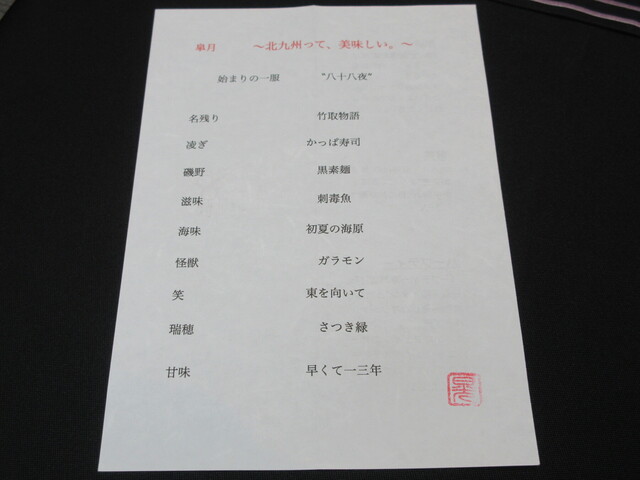 皐月　～北九州って、美味しい。～
始まりの一服　"八十八夜"
名残り　竹取物語
凌ぎ　かっぱ寿司
磯野　黒素麺
滋味　刺毒魚
海味　初夏の海原
怪獣　ガラモン
笑　東を向いて
瑞穂　さつき緑
甘味　早くて一三年